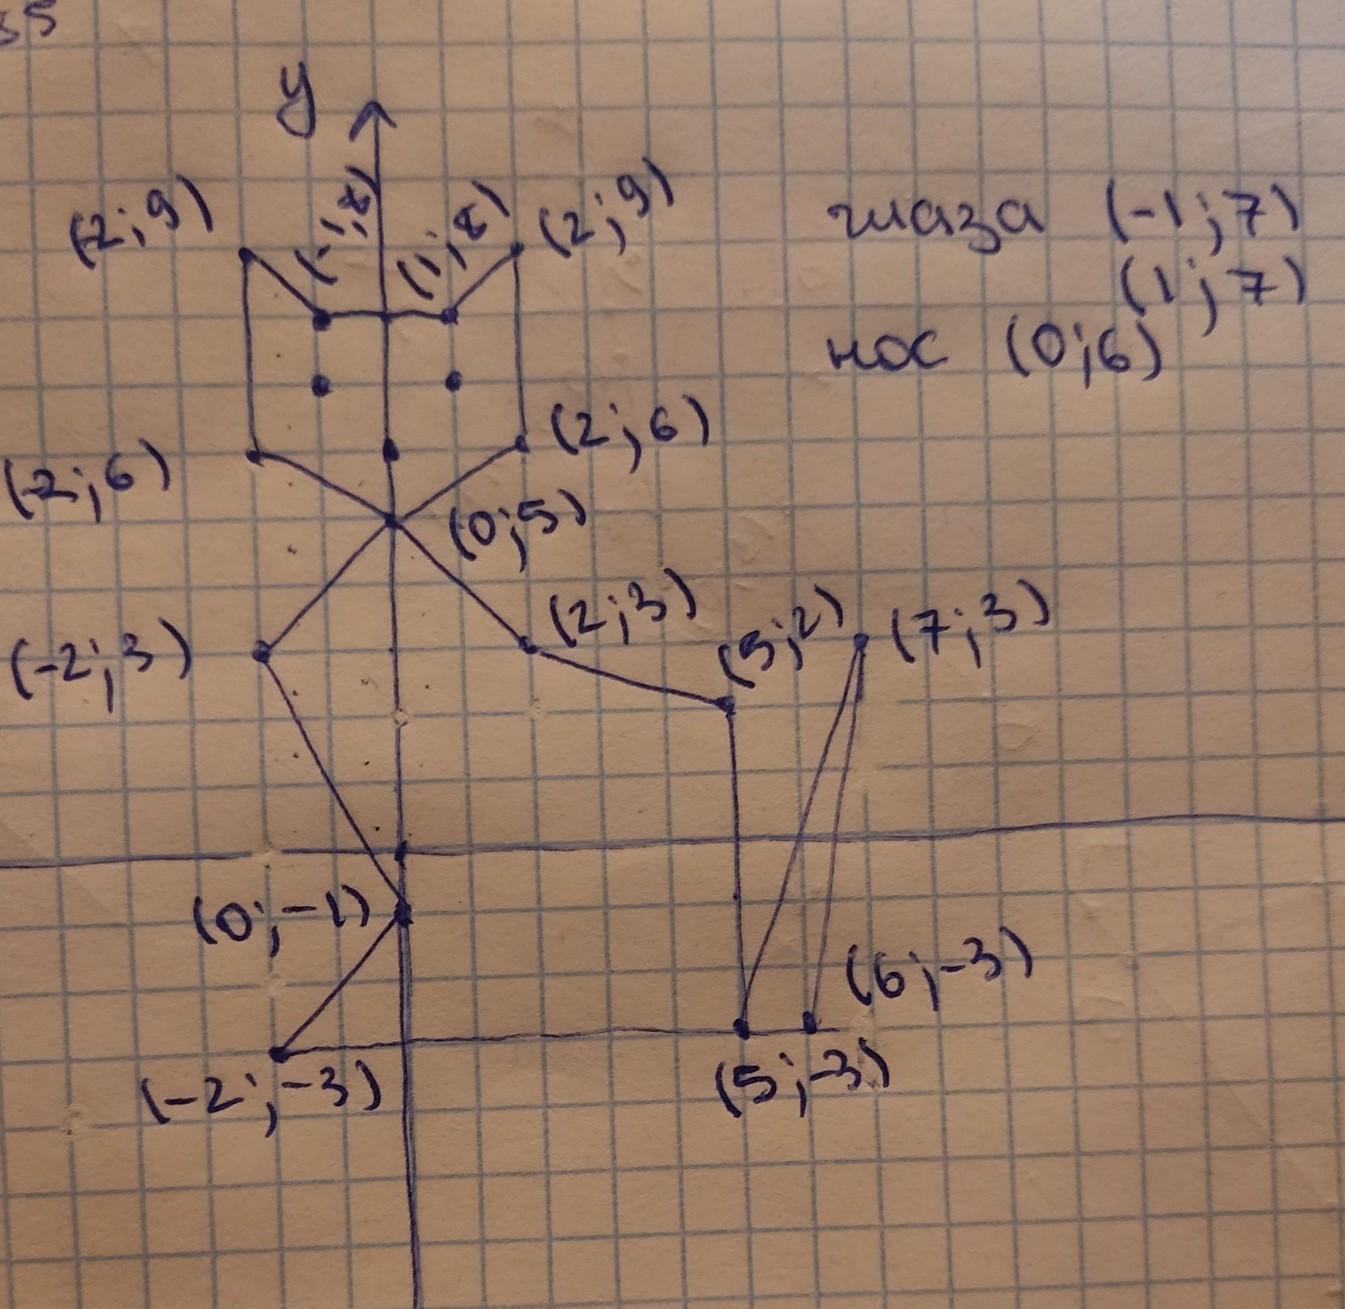 55
y
(2;9) (-1;8) (1;8) (2;9)
(-2;6) (2;6)
(0;5)
(-2;3) (2;3) (5;2) (7;3)
(0;-1)
(6;-3)
(-2;-3) (5;-3)
глаза (-1;7)
(1;7)
нос (0;6)